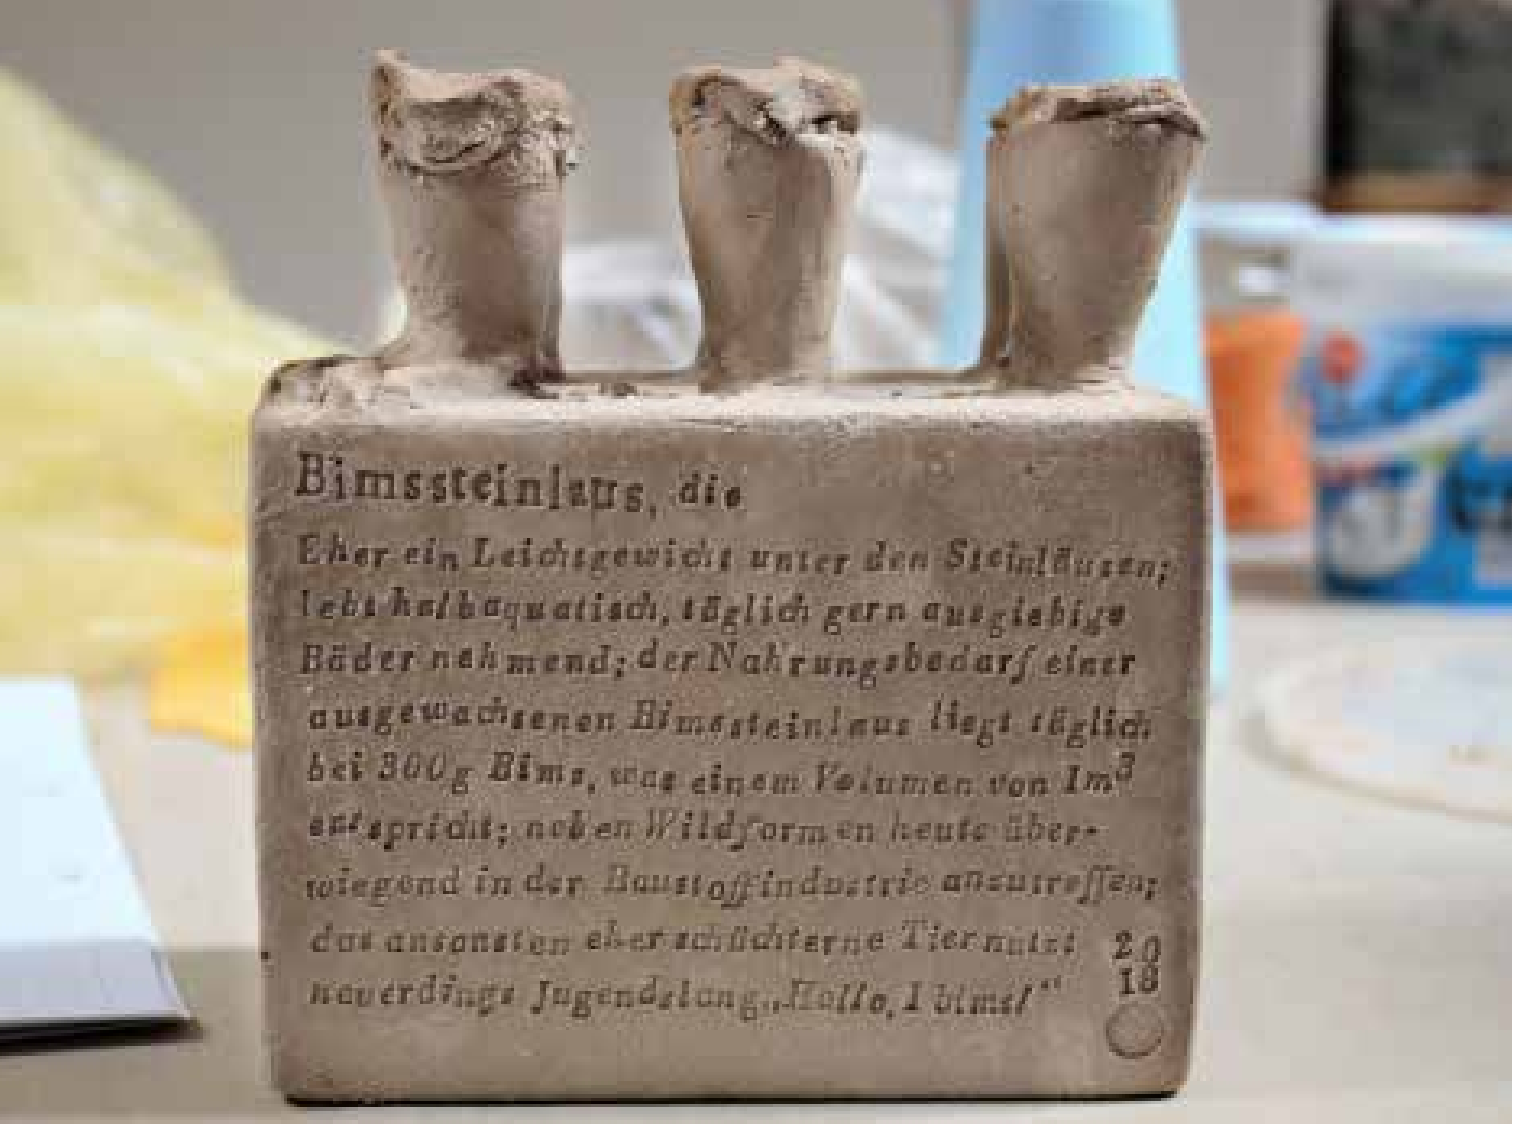 Bimssteinlaus, die
Eher ein Leichtgewicht unter den Steinläusen;
lebt halbaquatisch, täglich gern ausgiebige
Bäder nehmend; der Nahrungsbedarf einer
ausgewachsenen Bimssteinlaus liegt täglich
bei 300g Bims, was einem Volumen von 1m³
entspricht; neben Wildformen heute über-
wiegend in der Baustoffindustrie anzutreffen;
das ansonsten eher schüchterne Tier nutzt
neuerdings Jugendslang „Hallo, I bims!“
20
18